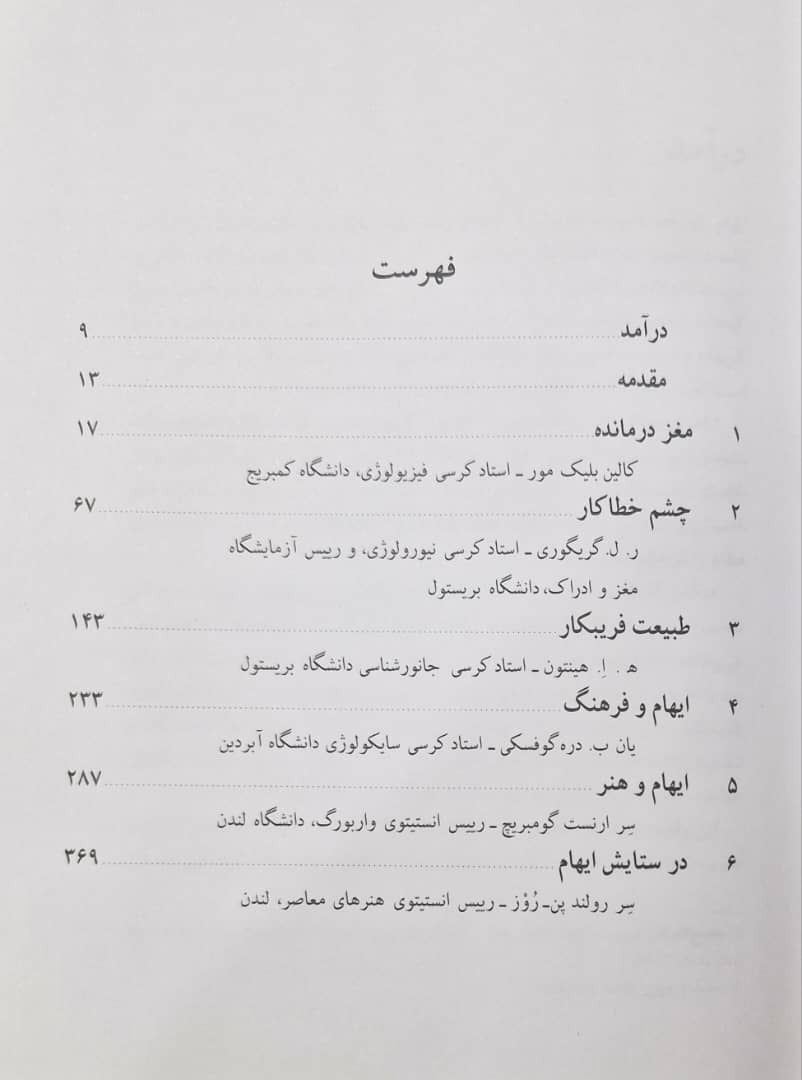 فهرست
درآمد ........ ۹
مقدمه ........ ۱۳
۱ مغز درمانده ........ ۱۷
کالین بلیک مور ـ استاد کرسی فیزیولوژی، دانشگاه کمبریج
۲ چشم خطاکار ........ ۶۷
ر. ل. گریگوری ـ استاد کرسی نیورولوژی، و رییس آزمایشگاه
مغز و ادراک، دانشگاه بریستول
۳ طبیعت فریبکار ........ ۱۴۳
ه . اِ. هینتون ـ استاد کرسی جانورشناسی دانشگاه بریستول
۴ ایهام و فرهنگ ........ ۲۳۳
یان ب. دره‌گوفسکی ـ استاد کرسی سایکولوژی دانشگاه آبردین
۵ ایهام و هنر ........ ۲۸۷
سِر ارنست گومبریچ ـ رییس انستیتوی واربورگ، دانشگاه لندن
۶ در ستایش ایهام ........ ۳۶۹
سِر رولند پن‌ـ رُوْز ـ رییس انستیتوی هنرهای معاصر، لندن